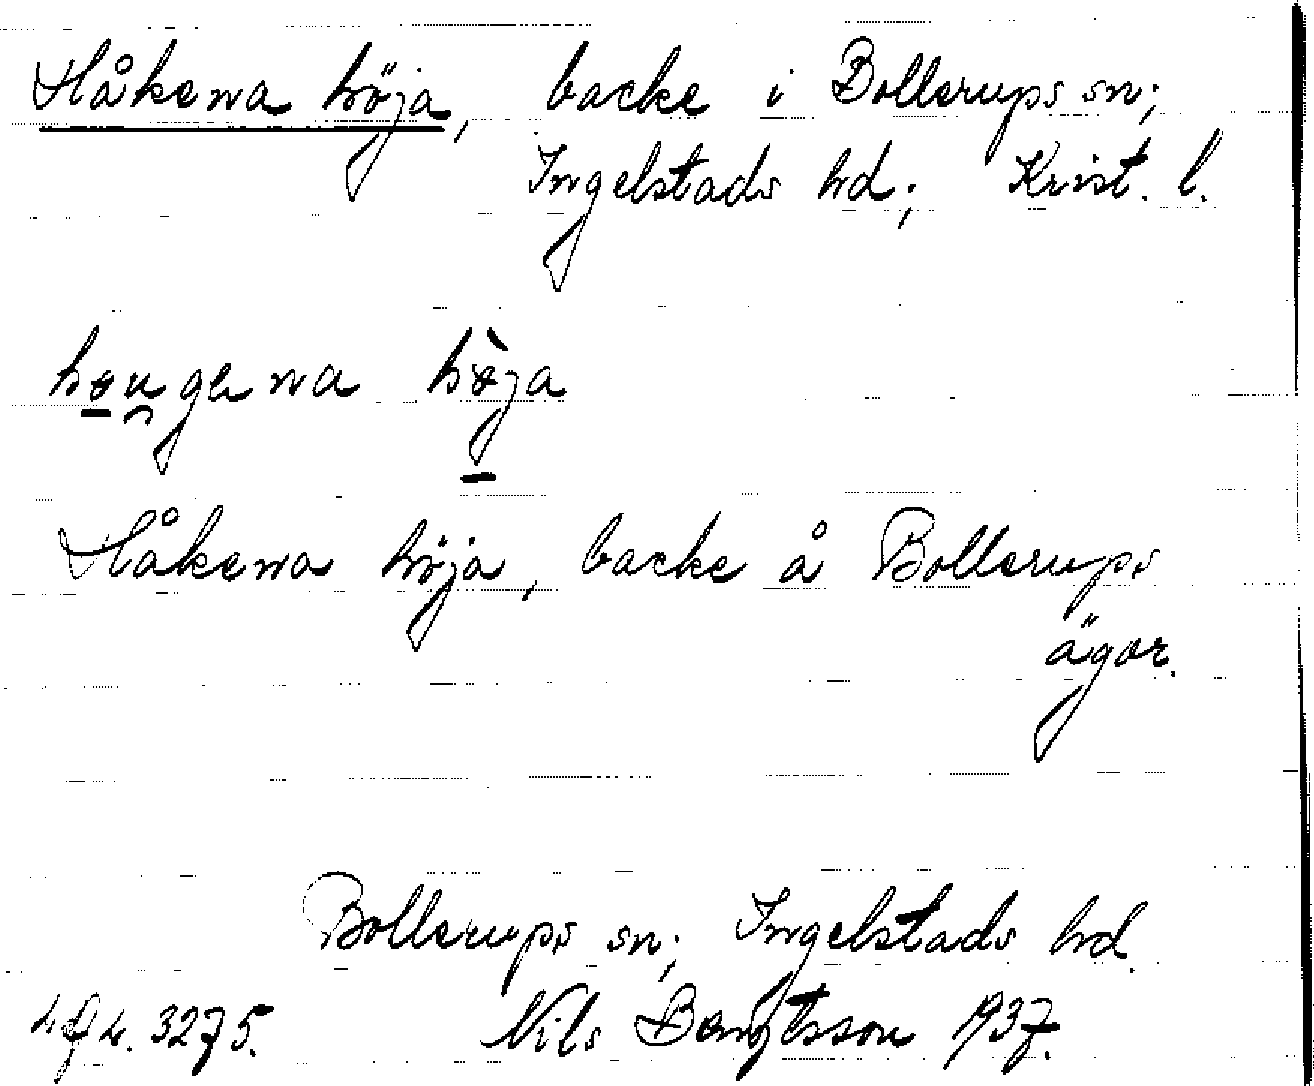 Håkena höja, backe i Bollerups sn;
Ingelstads hd; Krist. l.
høu̯gena hø̀ja
Håkena höja, backe å Bollerups
ägor.
Bollerups sn; Ingelstads hd.
3275. Nils Bengtsson 1937.